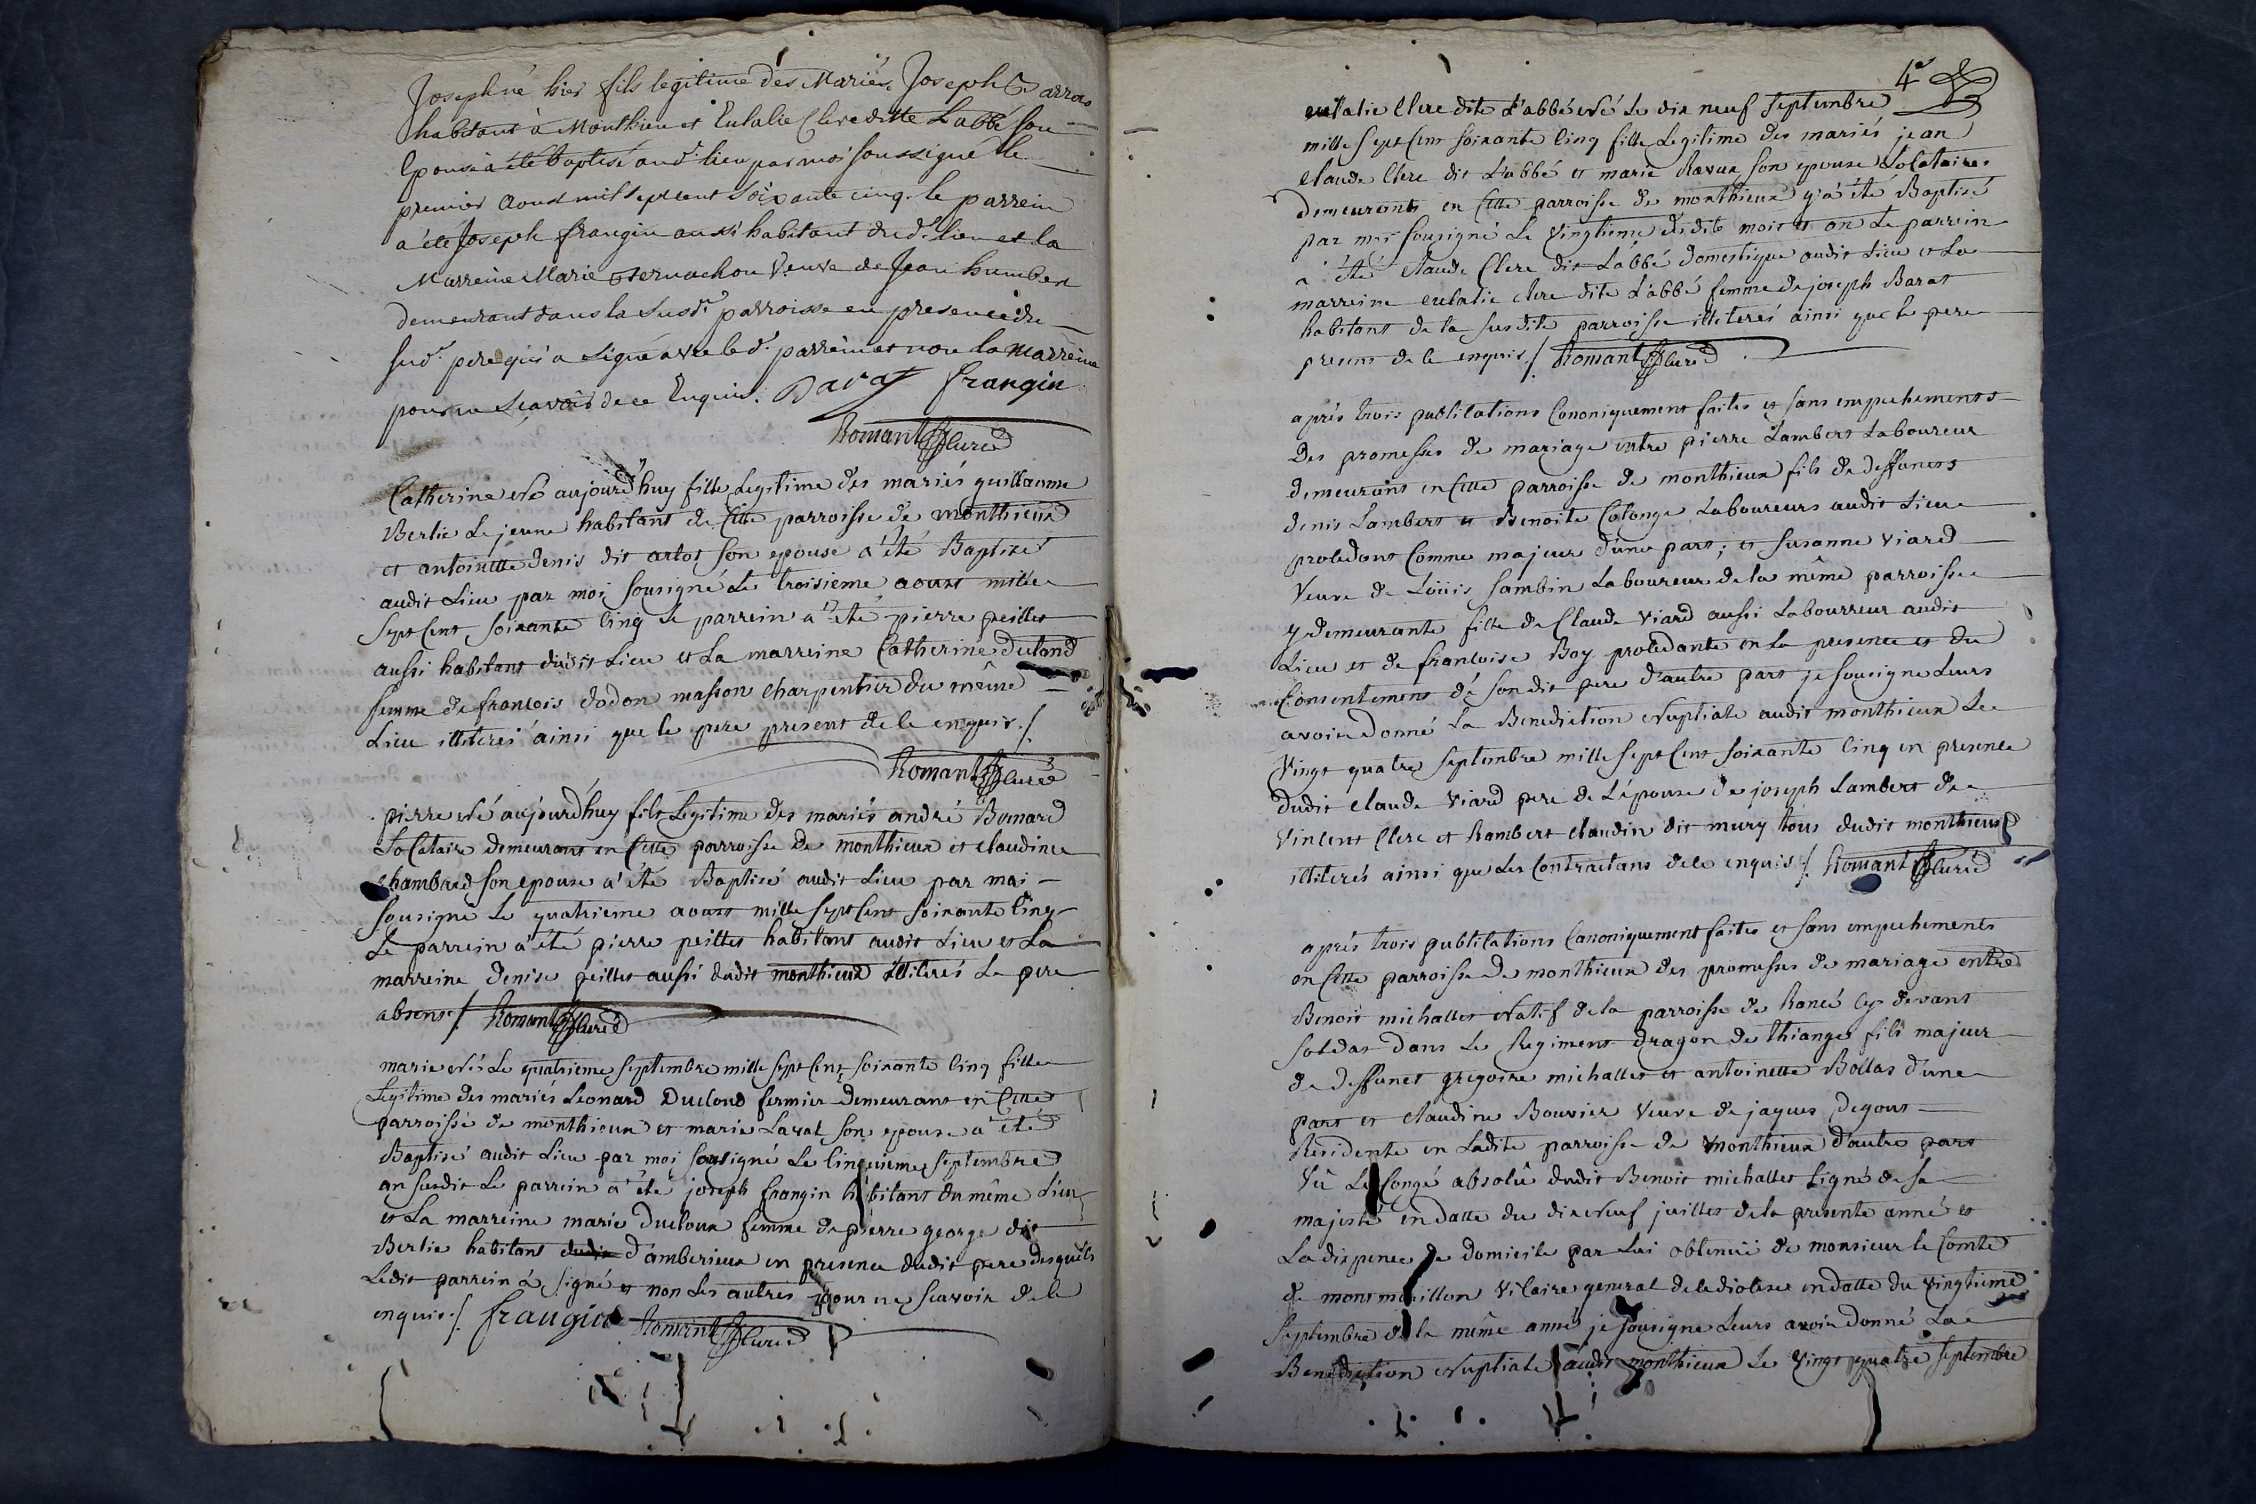 Joseph né hier fils legitime des Mariés Joseph Barras
habitant à Monthieu et Eulalie Clere ditte Labbé son
Epouse a été baptisé aud.t lieu par moi soussigné le
premier Aoust mil sept cent soixante cinq. le parrein
a été Joseph frangin aussi habitant dud.t lieu et la
Marreine Marie Veuve de Jean humbert
demeurant dans la susd.te parroisse en presence du
sud.t pere qui a signé avec led.t parrein et non la marreine
pour ne sçavoir de ce Enquis. Baras frangin
Romant Curé
Catherine Né aujourd'huy fille Legitime des mariés guillaume
Berlie Le jeune habitant de Cette parroisse de monthieux
et antoinette denis dit artos son epouse a été Baptisé
audit Lieu par moi sousigné Le troisieme aoust mille
sept Cent soixante Cinq le parrein a été pierre peillet
aussi habitant dudit Lieu et La marreine Catherine Dulond
femme de francois dodon masson charpentier du même
Lieu illiterés ainsi que le pere present de le enquis ./.
Romant Curé
pierre Né aujourd'huy fils Legitime des mariés andré Bernard
Locataire demeurant en Cette parroisse de monthieux et claudine
chambard son epouse a été Baptisé audit Lieu par moi
sousigné Le quatrieme aoust mille sept Cent soixante Cinq
Le parrein a été pierre peillet habitant audit Lieu et La
marreine denise peillet aussi dudit monthieux illiterés Le pere
absent ./. Romant Curé
marie Née Le quatrieme septembre mille sept Cent soixante Cinq fille
Legitime des mariés Leonard Duclond fermier demeurant en Cette
parroisse de monthieux et marie Laval son epouse a été
Baptisé audit Lieu par moi sousigné Le Cinquieme septembre
an susdit Le parrein a été joseph frangin habitant du même Lieu
et La marreine marie Ducloux femme de pierre george dit
Berlie habitant dudit d'amberieux en presence dudit pere desquels
Ledit parrein a signé et non Les autres pour ne scavoir de le
enquis ./. frangin Romant Curé
4e
eulalie Clere dite L'abbé Né Le dix neuf septembre
mille sept Cent soixante Cinq fille Legitime des mariés jean
Claude Clere dit L'abbé et marie Ravux son epouse Locataires
demeurants en Cette parroisse de monthieux y'a été Baptisé
par moi sousigné Le Vingtieme dudit mois et an Le parrein
a été Claude Clere dit L'abbé domestique audit Lieu et La
marreine eulalie clere dite L'abbé femme de joseph Barat
habitant de la susdite parroisse illiterés ainsi que le pere
present de le enquis ./. Romant Curé
après trois publications Canoniquement faites et sans empechements
Des promesses de mariage entre pierre Lambert Laboureur
demeurant en Cette parroisse de monthieux fils de deffuncts
denis Lambert et Benoite Colonge Laboureurs audit Lieu
procedant Comme majeur d'une part; et susanne Viard
Veuve de Loüis sambin Laboureur de la même parroisse
y demeurante fille de Claude Viard aussi Labourreur audit
Lieu et de francoise Boy procedante en La presence et du
Consentement de sondit pere d'autre part je sousigne Leurs
avoir donné La Benediction Nuptiale audit monthieux Le
Vingt quatre septembre mille sept Cent soixante Cinq en presence
dudit claude Viard pere de L'épouse de joseph Lambert de
Vincent Clere et hambert claudin dit mury tous dudit monthieux
illiterés ainsi que Les Contractans de le enquis ./. Romant Curé
après trois publications Canoniquement faites et sans empechements
en Cette parroisse de monthieux des promesses de mariage entre
Benoit michallet Natif de la parroisse de Rancé Cy devant
soldat dans Le Regiment dragon de thianges fils majeur
de deffunct gregoire michallet et antoinette Bollas d'une
part et claudine Bouvier Veuve de jaques Degout
Residente en Ladite parroisse de monthieux d'autre part
Vû Le Congé absolû dudit Benoit michallet signé de sa
majesté en datte du dix Neuf juillet de la presente anné et
La dispence de domicile par Lui obtenüe de monsieur le Comte
de montmorillon Vicaire general de le diocese en datte du Vingtieme
septembre de la même anné je sousigne Leurs avoir donné La
Benediction Nuptiale audit monthieux Le Vingt quatre septembre